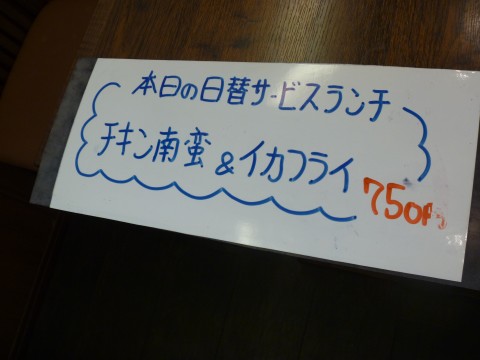 本日の日替サービスランチ
チキン南蛮&イカフライ
750円